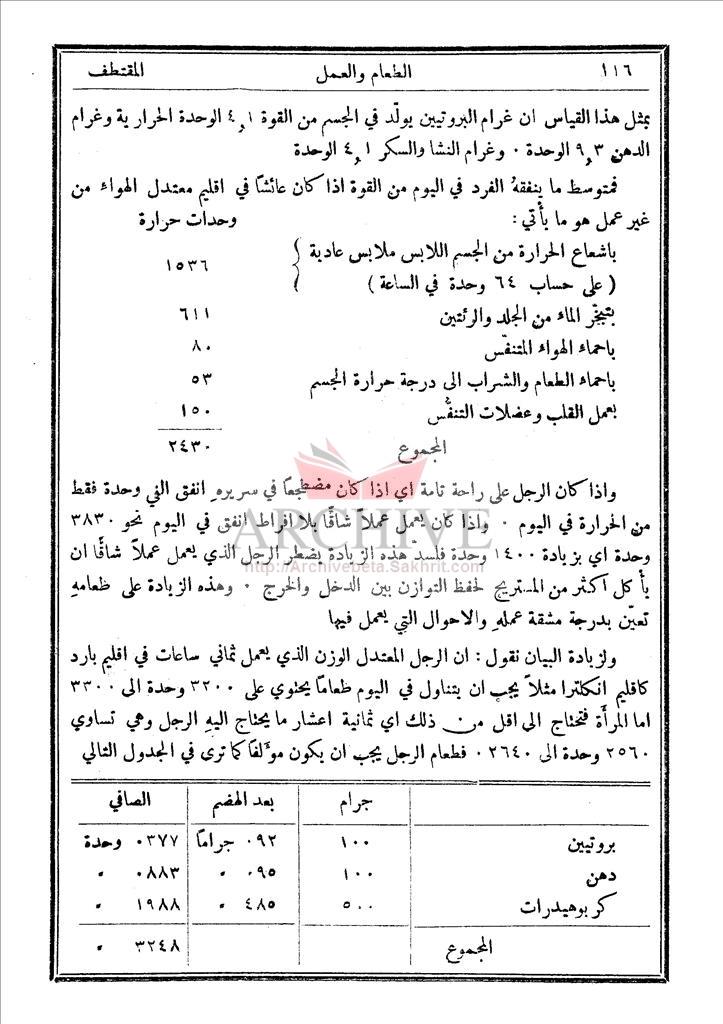 ١١٦ الطعام والعمل المقتطف
بمثل هذا القياس ان غرام البروتيين يولّد في الجسم من القوة ٤٫١ الوحدة الحرارية وغرام
الدهن ٩٫٣ الوحدة ٠ وغرام النشا والسكر ٤٫١ الوحدة
فمتوسط ما ينفقهُ الفرد في اليوم من القوة اذا كان عائشًا في اقليم معتدل الهواء من
غير عمل هو ما يأتي : وحدات حرارة
باشعاع الحرارة من الجسم اللابس ملابس عادية
( على حساب ٦٤ وحدة في الساعة ) ١٥٣٦
بتبخّر الماء من الجلد والرئتين ٦١١
باحماء الهواء المتنفّس ٨٠
باحماء الطعام والشراب الى درجة حرارة الجسم ٥٣
بعمل القلب وعضلات التنفّس ١٥٠
المجموع ٢٤٣٠
واذا كان الرجل على راحة تامة اي اذا كان مضطجعًا في سريرهِ انفق الفي وحدة فقط
من الحرارة في اليوم ٠ واذا كان يعمل عملاً شاقًا بلا افراط انفق في اليوم نحو ٣٨٣٠
وحدة اي بزيادة ١٤٠٠ وحدة فلسدّ هذه الزيادة يضطر الرجل الذي يعمل عملاً شاقًا ان
يأكل اكثر من المستريح لحفظ التوازن بين الدخل والخرج ٠ وهذه الزيادة على طعامهِ
تعيّن بدرجة مشقة عملهِ والاحوال التي يعمل فيها
ولزيادة البيان نقول : ان الرجل المعتدل الوزن الذي يعمل ثماني ساعات في اقليم بارد
كاقليم انكلترا مثلاً يجب ان يتناول في اليوم طعامًا يحتوي على ٣٢٠٠ وحدة الى ٣٣٠٠
اما المرأة فتحتاج الى اقل من ذلك اي ثمانية اعشار ما يحتاج اليهِ الرجل وهي تساوي
٢٥٦٠ وحدة الى ٢٦٤٠ ٠ فطعام الرجل يجب ان يكون مؤلفًا كما ترى في الجدول التالي
جرام بعد الهضم الصافي
بروتيين ١٠٠ ٠٩٢ جرامًا ٠٣٧٧ وحدة
دهن ١٠٠ ٠٩٥ " ٠٨٨٣ "
كربوهيدرات ٥٠٠ ٤٨٥ " ١٩٨٨ "
المجموع ٣٢٤٨ "
ARCHIVE
http://Archivebeta.Sakhrit.com